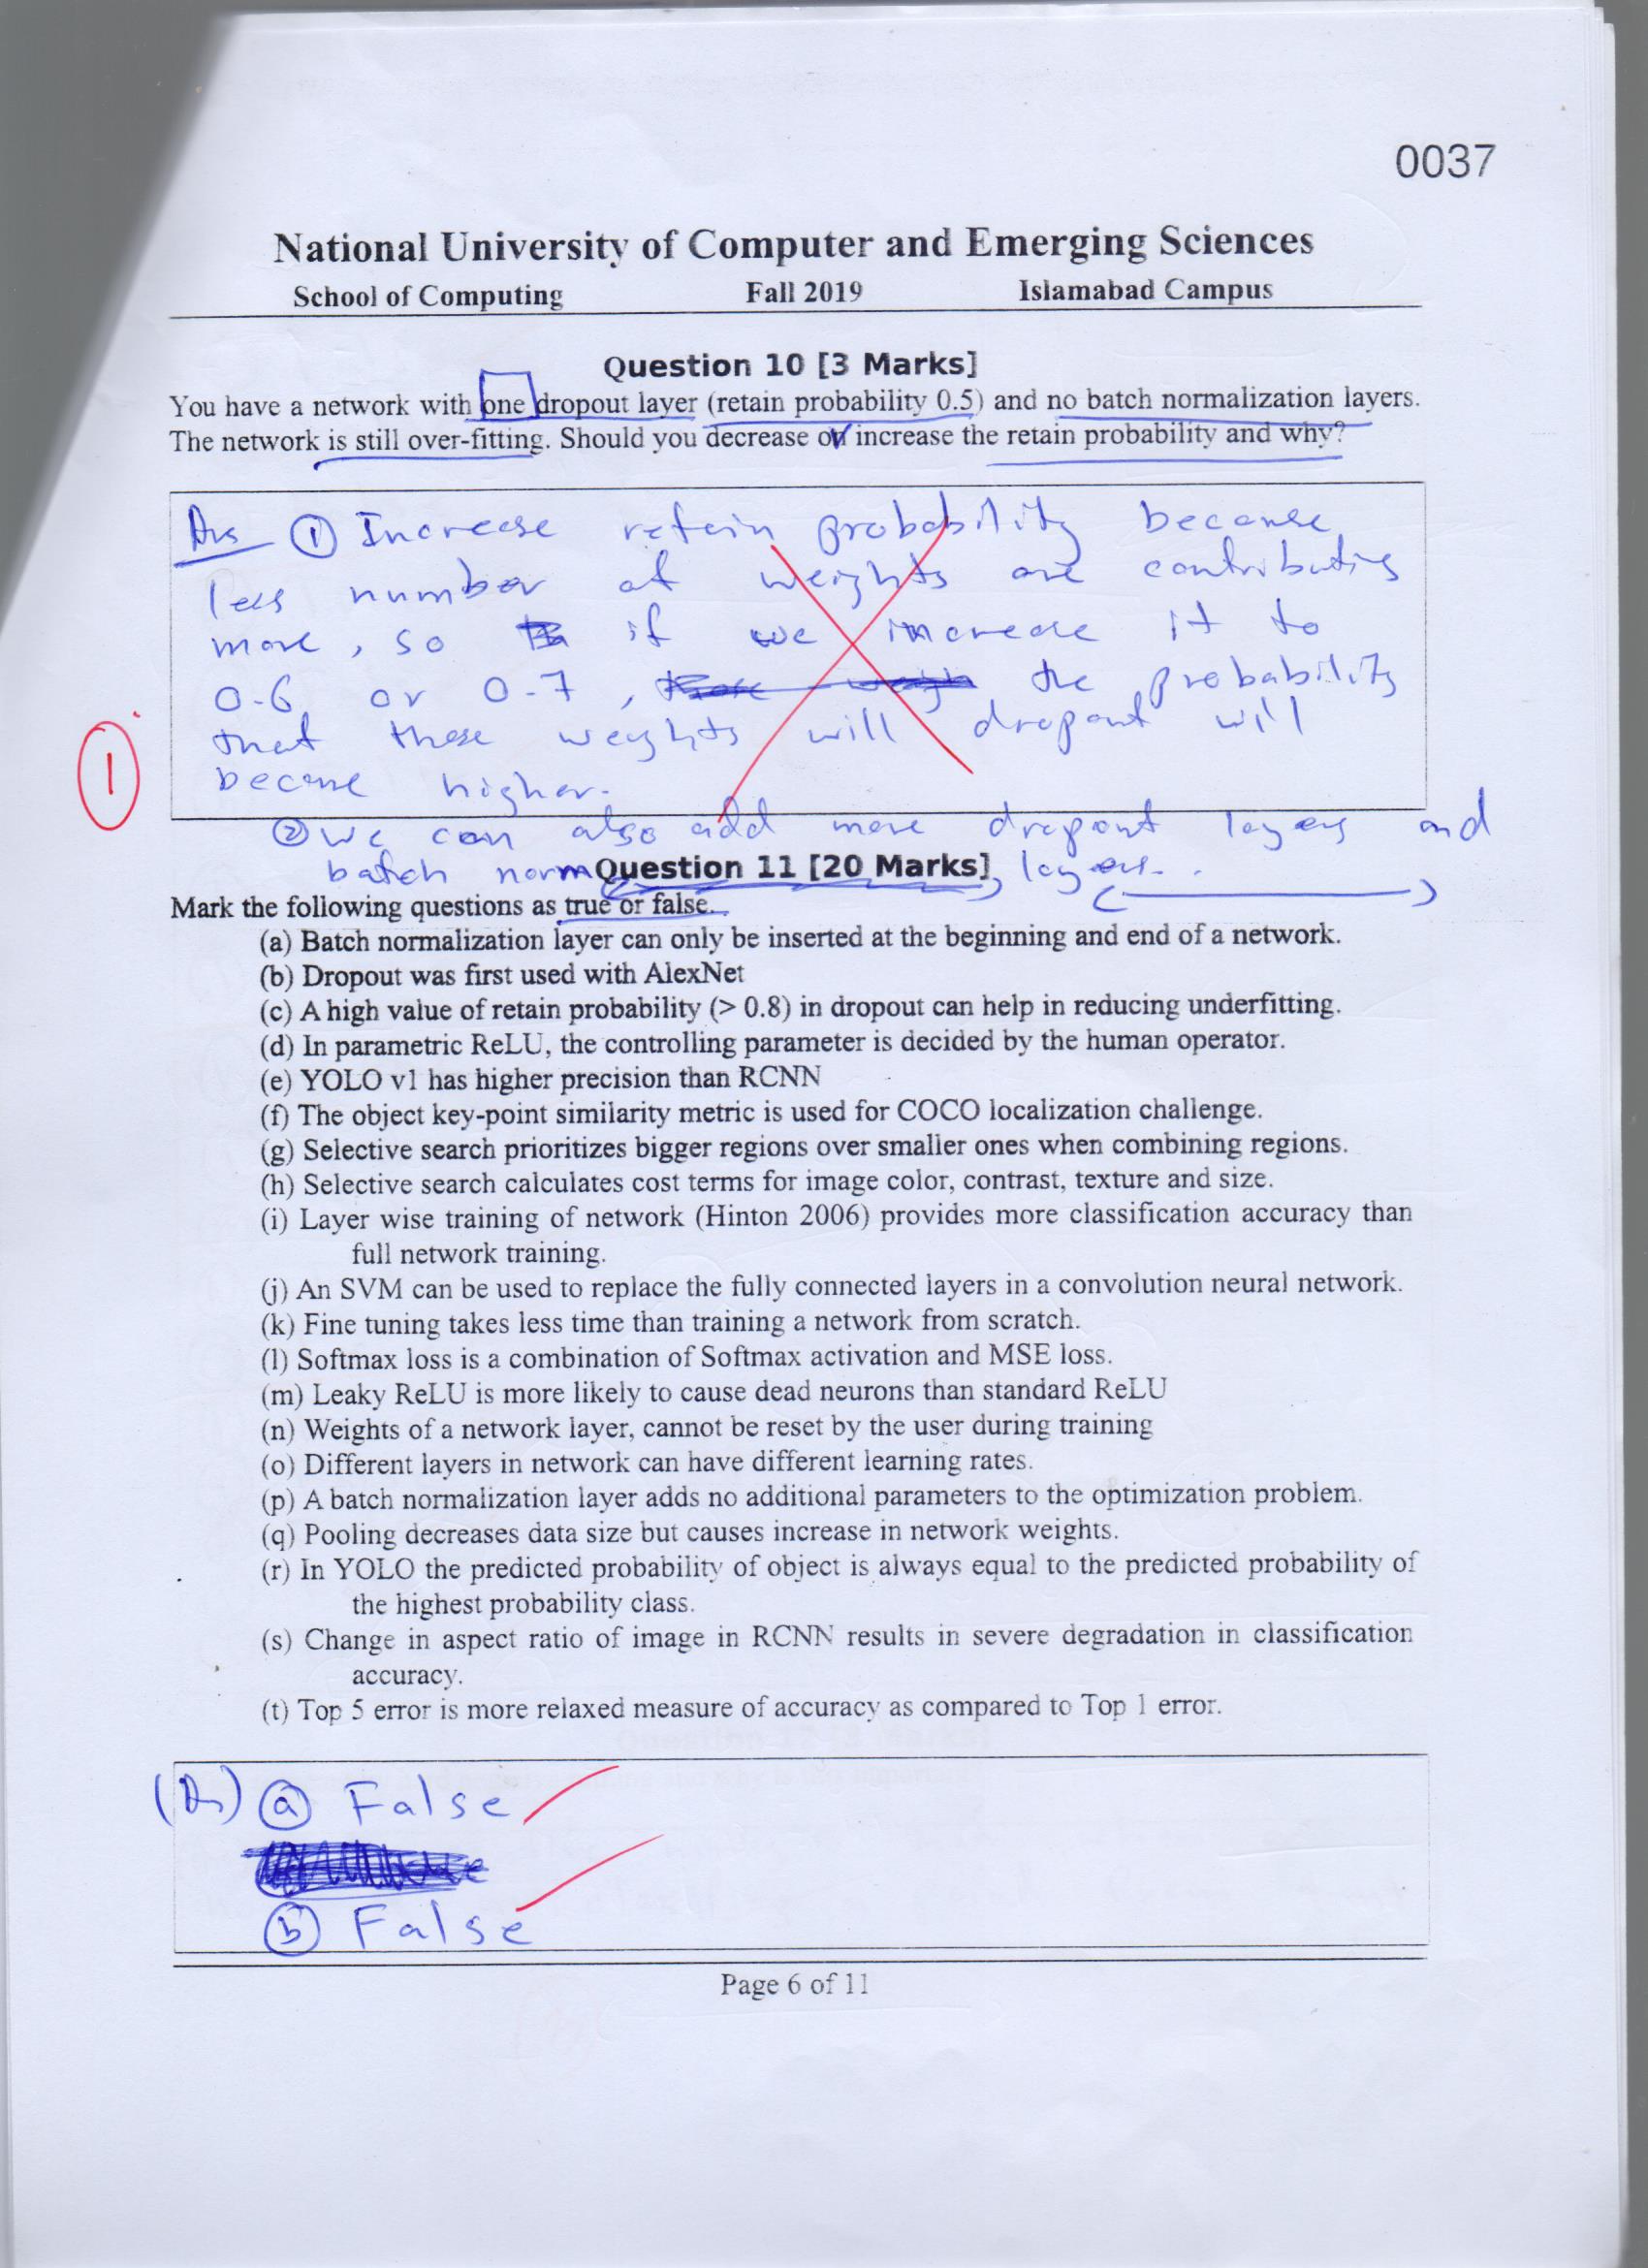 0037
National University of Computer and Emerging Sciences
School of Computing Fall 2019 Islamabad Campus
Question 10 [3 Marks]
You have a network with one dropout layer (retain probability 0.5) and no batch normalization layers.
The network is still over-fitting. Should you decrease or increase the retain probability and why?
Ans ① Increase retain probability because
less number of weights are contributing
more, so if we increase it to
0.6 or 0.7, the probability
that these weights will dropout will
become higher.
1
② we can also add more dropout layers and
batch norm layers.
Question 11 [20 Marks]
Mark the following questions as true or false.
(a) Batch normalization layer can only be inserted at the beginning and end of a network.
(b) Dropout was first used with AlexNet
(c) A high value of retain probability (> 0.8) in dropout can help in reducing underfitting.
(d) In parametric ReLU, the controlling parameter is decided by the human operator.
(e) YOLO v1 has higher precision than RCNN
(f) The object key-point similarity metric is used for COCO localization challenge.
(g) Selective search prioritizes bigger regions over smaller ones when combining regions.
(h) Selective search calculates cost terms for image color, contrast, texture and size.
(i) Layer wise training of network (Hinton 2006) provides more classification accuracy than
full network training.
(j) An SVM can be used to replace the fully connected layers in a convolution neural network.
(k) Fine tuning takes less time than training a network from scratch.
(l) Softmax loss is a combination of Softmax activation and MSE loss.
(m) Leaky ReLU is more likely to cause dead neurons than standard ReLU
(n) Weights of a network layer, cannot be reset by the user during training
(o) Different layers in network can have different learning rates.
(p) A batch normalization layer adds no additional parameters to the optimization problem.
(q) Pooling decreases data size but causes increase in network weights.
(r) In YOLO the predicted probability of object is always equal to the predicted probability of
the highest probability class.
(s) Change in aspect ratio of image in RCNN results in severe degradation in classification
accuracy.
(t) Top 5 error is more relaxed measure of accuracy as compared to Top 1 error.
ⓐ False
ⓑ False
Page 6 of 11